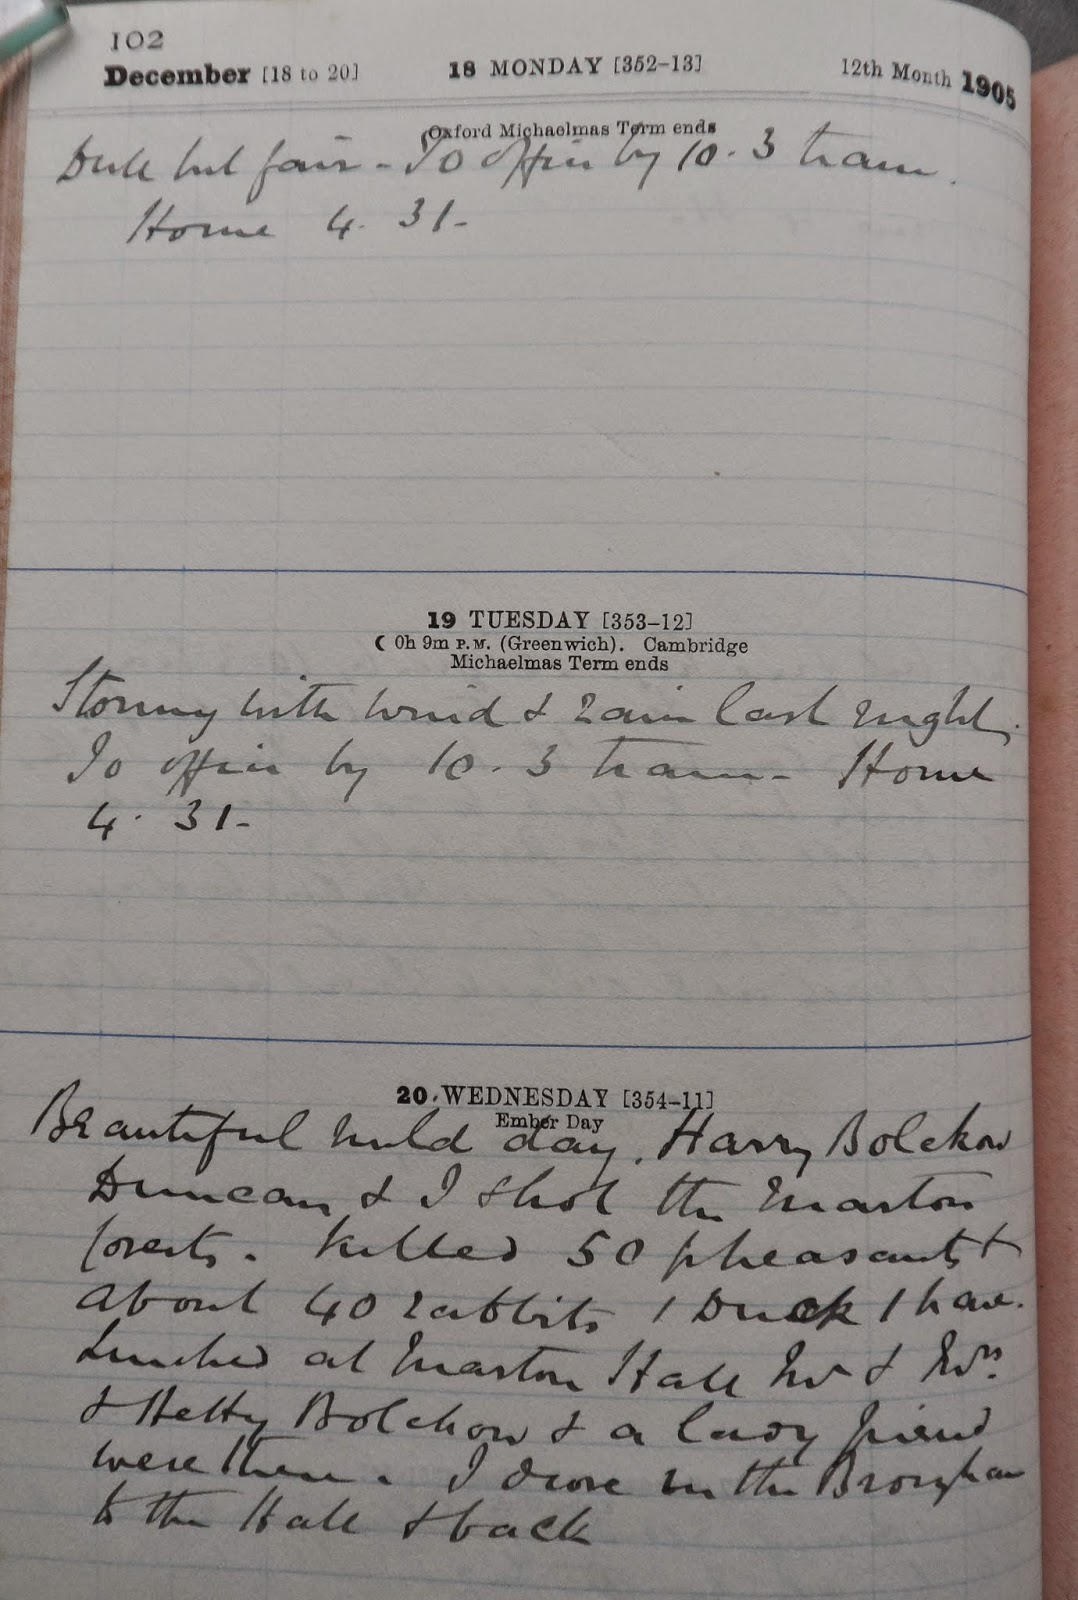 102
December [18 to 20] 18 MONDAY [352-13] 12th Month 1905
Oxford Michaelmas Term ends
Dull but fair - To office by 10.3 train.
Home 4.31-
19 TUESDAY [353-12]
☾ 0h 9m P.M. (Greenwich). Cambridge
Michaelmas Term ends
Stormy with wind & rain last night,
To office by 10.3 train - Home
4.31-
20 WEDNESDAY [354-11]
Ember Day
Beautiful mild day. Harry Bolckow
Duncan & I shot the Marton
forests. Killed 50 pheasants &
about 40 rabbits 1 Duck 1 hare.
Lunched at Marton Hall Mr & Mrs.
& Hetty Bolckow & a lady friend
were there. I drove in the Brougham
to the Hall & back